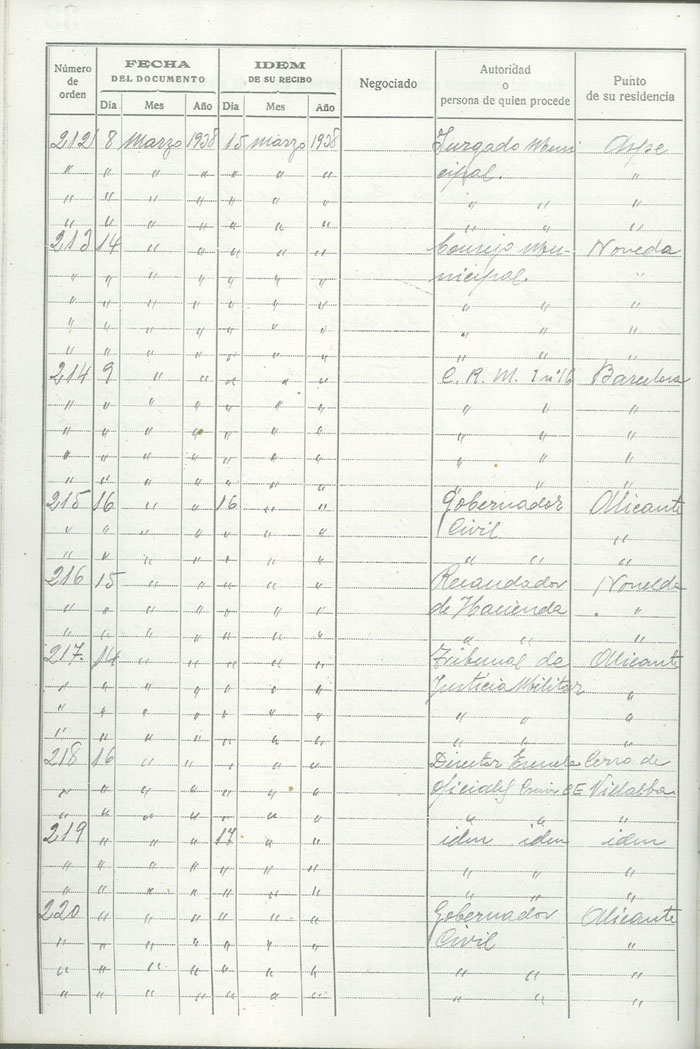 Número de orden FECHA DEL DOCUMENTO IDEM DE SU RECIBO Negociado Autoridad o persona de quien procede Punto de su residencia
Día Mes Año Día Mes Año
212 8 Marzo 1938 15 marzo 1938 Juzgado Muni Aspe
" " " " " " " cipal. "
" " " " " " " " " "
" " " " " " " " " "
213 14 " " " " " Consejo Mu- Novelda
" " " " " " nicipal. "
" " " " " " " " " "
" " " " " " " " " "
" " " " " " " " " "
214 9 " " " " " C. R. M. I nº 16 Barcelona
" " " " " " " " " "
" " " " " " " " " "
" " " " " " " " " "
" " " " " " " " " "
215 16 " " 16 " " Gobernador Alicante
" " " " " " " Civil "
" " " " " " " " " "
216 15 " " " " " Recaudador Novelda
" " " " " " " de Hacienda "
" " " " " " " " " "
217. 14 " " " " " Tribunal de Alicante
" " " " " " " Justicia Militar "
" " " " " " " " " "
" " " " " " " " " "
218 16 " " " " " Director Escuela Cerro de
" " " " " " " Oficiales CE Villalba
" " " " " " " " " "
219 " " " 17 " " idem idem idem
" " " " " " " " " "
" " " " " " " " " "
220 " " " " " " Gobernador Alicante
" " " " " " " Civil "
" " " " " " " " " "
" " " " " " " " " "